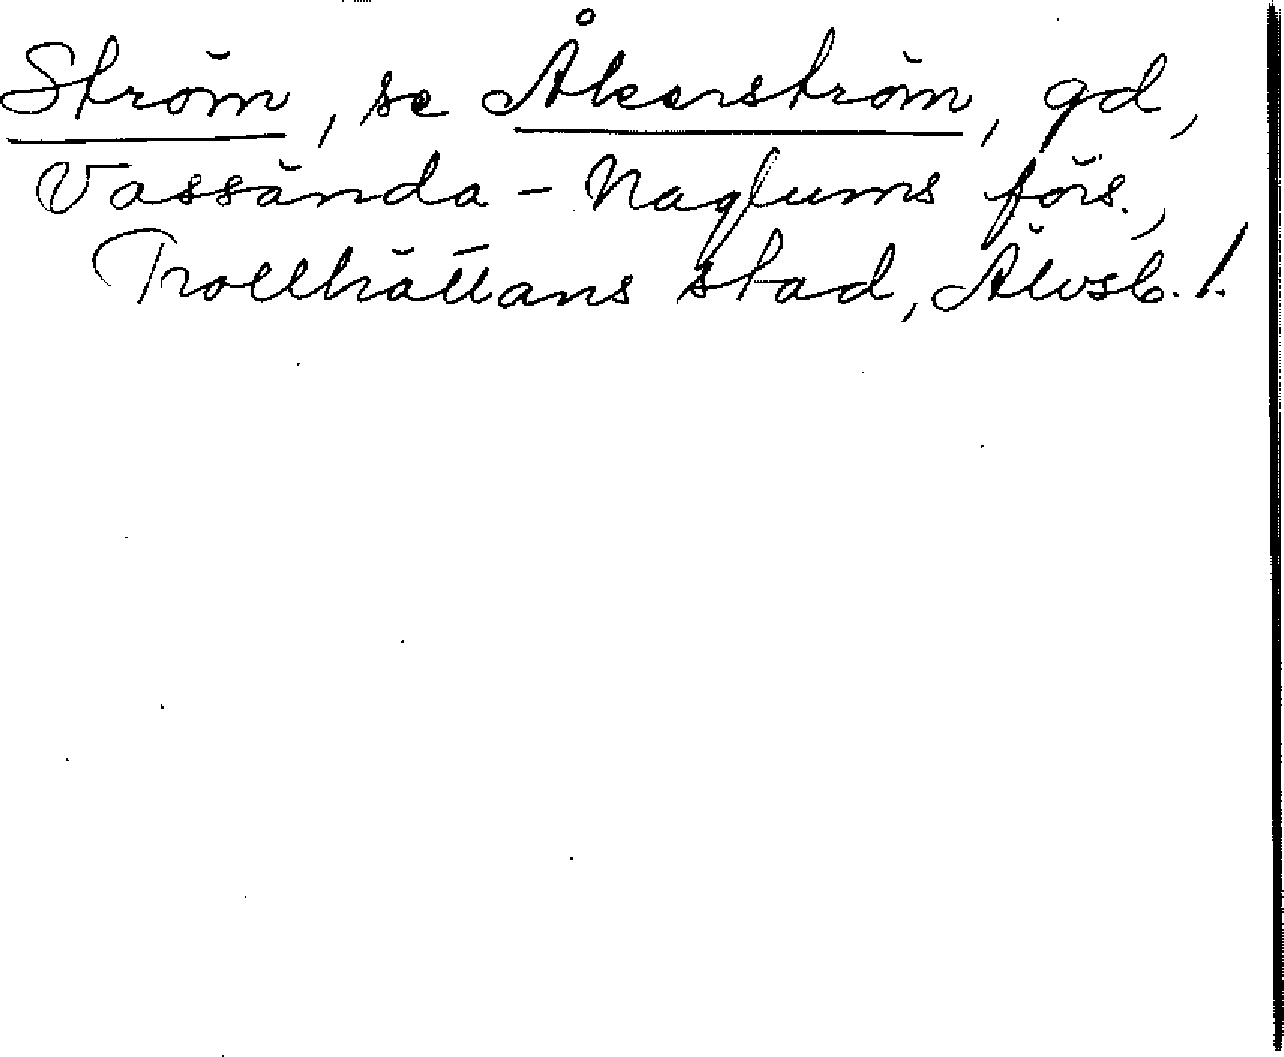 Ström, se Åkerström, gd,
Vassända-Naglums förs.,
Trollhättans stad, Älvsb. l.